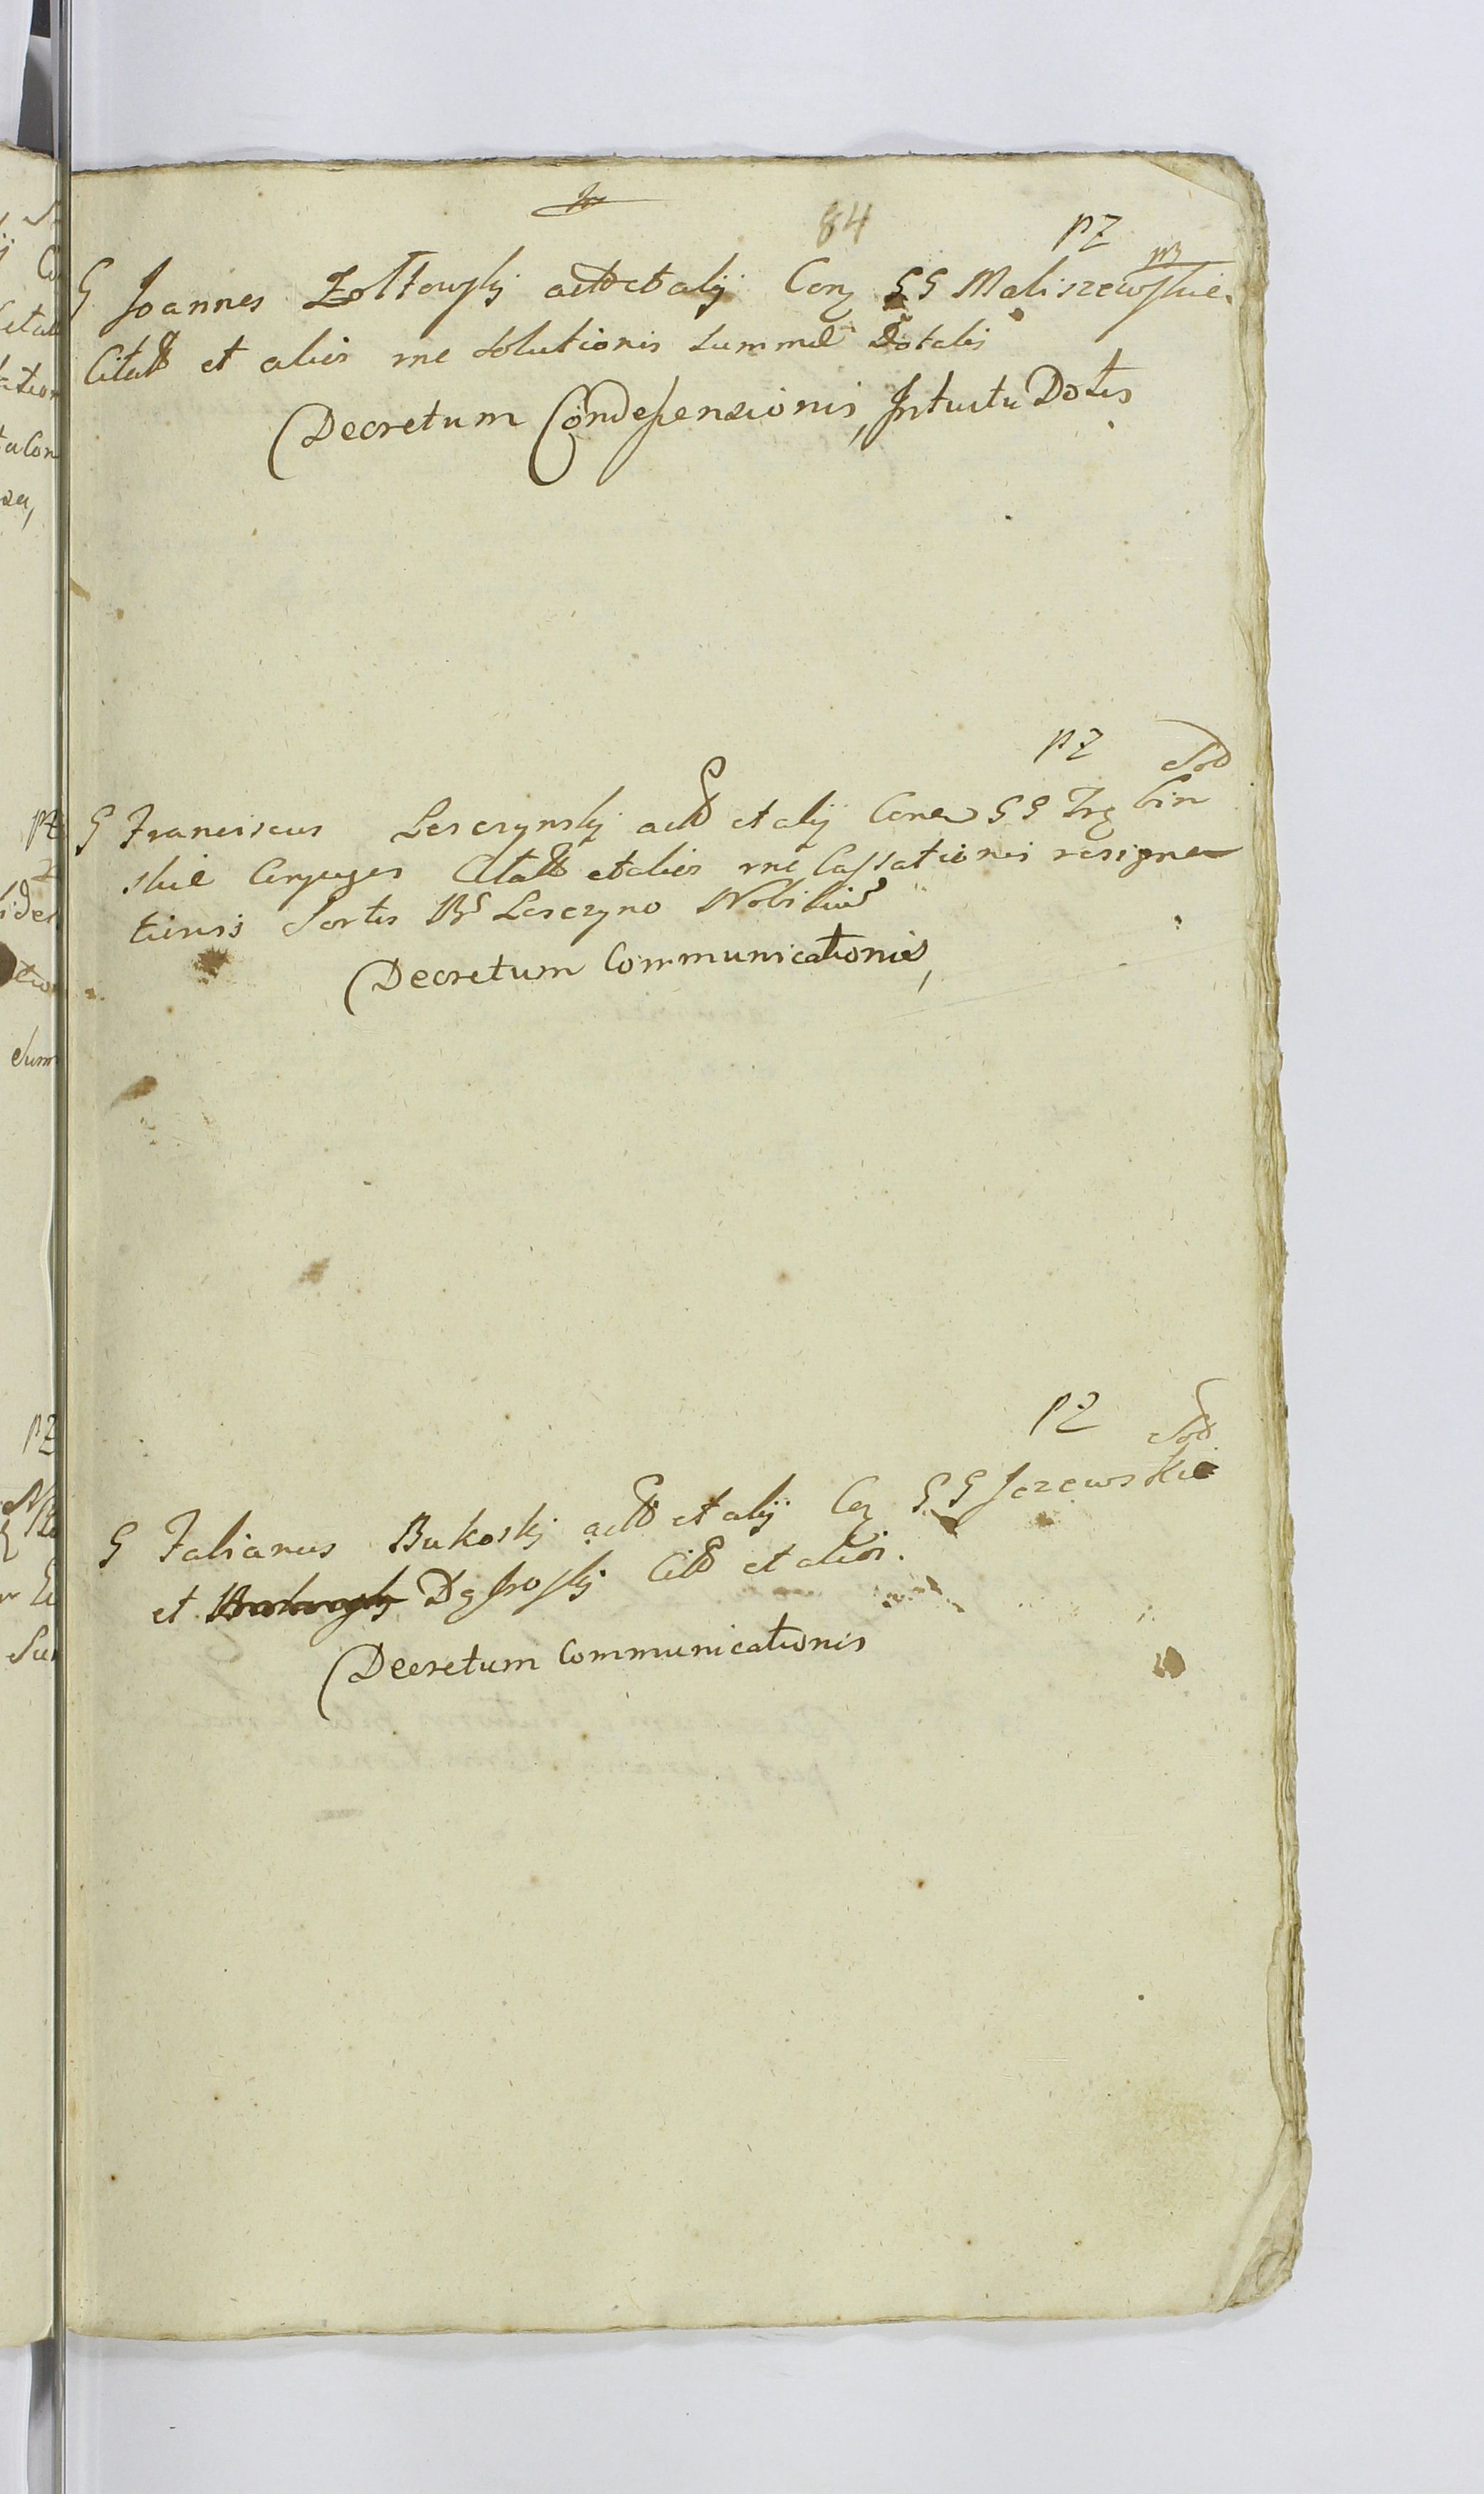 84
PZ
G Joannes Zołtowskj actor et alij Con GG Maliszewskie
Citat et alios rne Solutionis Summæ Dotalis
Decretum Condescensionis, Intuitu Dotis
PZ
G Franciscus Lesczynskj act et alij Cona GG Trębin
skie Conjuges Citat et alios rne Cassationis resigna
tionis Sortis Lesczyno Nobiliu
Decretum Communicationis,
PZ
G Fabianus Bukoskj act et alij Con GG Jezewskie
et Cit et alios.
Decretum Communicationis